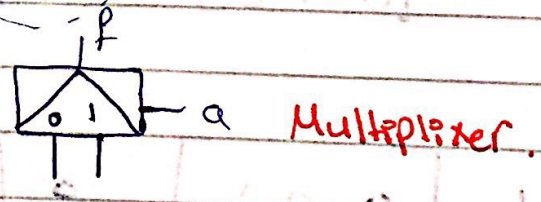 f
0 1
a
Multiplixer.